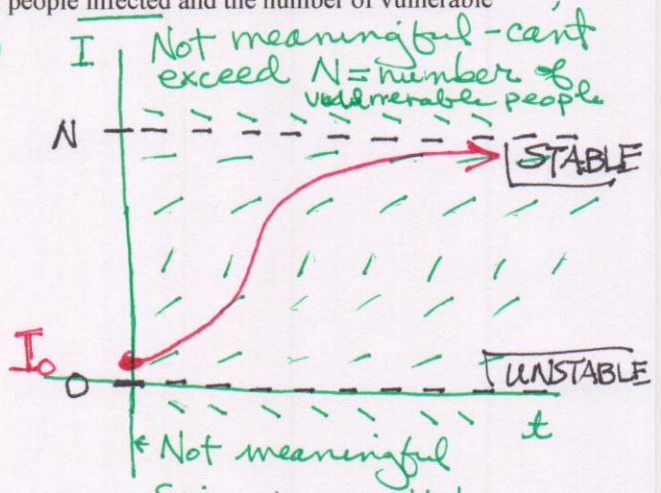 people infected and the number of vulnerable
I
Not meaningful - can't
exceed N = number of
vulnerable people
N
STABLE
I₀
0
UNSTABLE
t
← Not meaningful